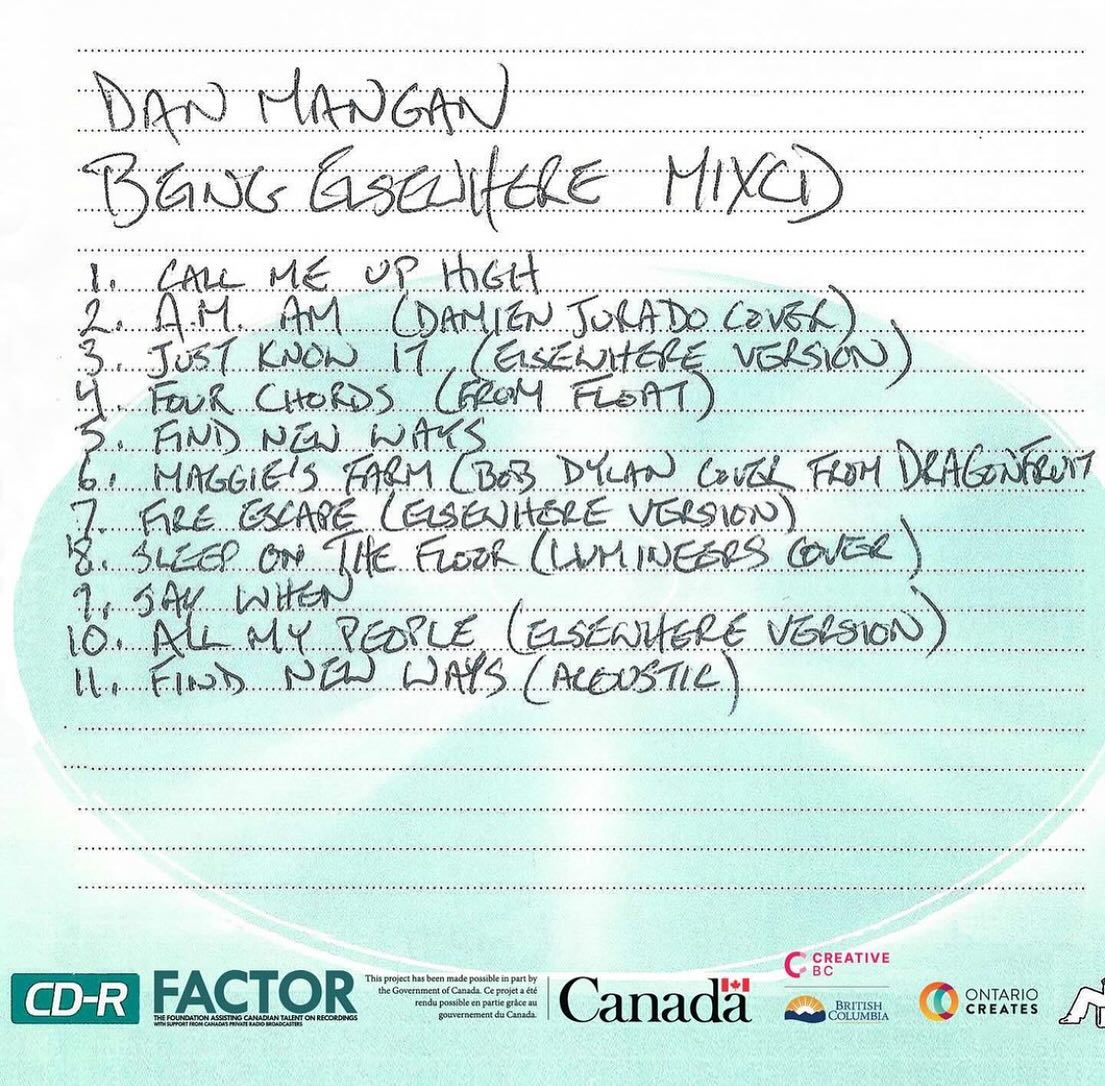 DAN MANGAN
BEING ELSEWHERE MIXCD
1. CALL ME UP HIGH
2. A.M. AM (DAMIEN JURADO COVER)
3. JUST KNOW IT (ELSEWHERE VERSION)
4. FOUR CHORDS (FROM FLOAT)
5. FIND NEW WAYS
6. MAGGIE'S FARM (BOB DYLAN COVER FROM DRAGONFRUIT
7. FIRE ESCAPE (ELSEWHERE VERSION)
8. SLEEP ON THE FLOOR (LUMINEERS COVER)
9. SAY WHEN
10. ALL MY PEOPLE (ELSEWHERE VERSION)
11. FIND NEW WAYS (ACOUSTIC)
CD-R
FACTOR
THE FOUNDATION ASSISTING CANADIAN TALENT ON RECORDINGS
WITH SUPPORT FROM CANADA'S PRIVATE RADIO BROADCASTERS
This project has been made possible in part by
the Government of Canada. Ce projet a été
rendu possible en partie grâce au
gouvernement du Canada.
Canada
CREATIVE
BC
BRITISH
COLUMBIA
ONTARIO
CREATES